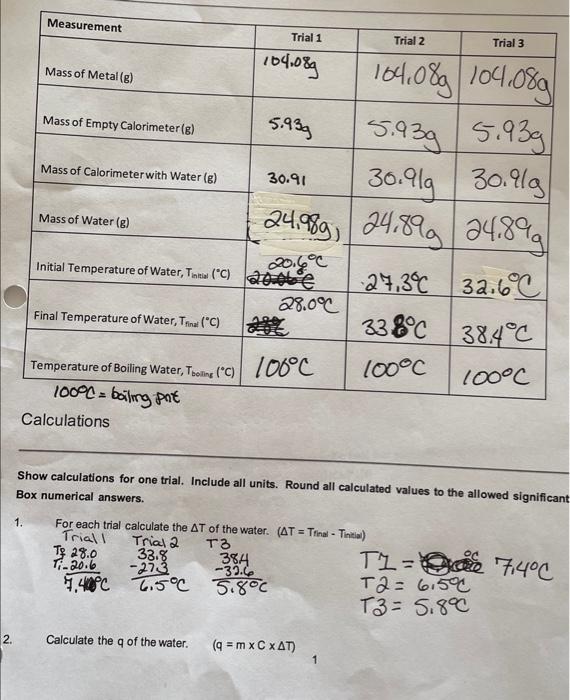 Measurement Trial 1 Trial 2 Trial 3
Mass of Metal (g) 104.08g 104.08g 104.08g
Mass of Empty Calorimeter (g) 5.93g 5.93g 5.93g
Mass of Calorimeter with Water (g) 30.91 30.91g 30.91g
Mass of Water (g) 24.98g 24.89g 24.89g
20.6°C
Initial Temperature of Water, Tinitial (°C) 27.3°C 32.6°C
28.0°C
Final Temperature of Water, Tfinal (°C) 33.8°C 38.4°C
Temperature of Boiling Water, Tboiling (°C) 100°C 100°C 100°C
100°C = boiling
Calculations
Show calculations for one trial. Include all units. Round all calculated values to the allowed significant
Box numerical answers.
1. For each trial calculate the ΔT of the water. (ΔT = Tfinal - Tinitial)
Trial 1 Trial 2 T3
Tf 28.0 33.8 38.4
Ti -20.6 -27.3 -32.6
7.4°C 6.5°C 5.8°C
T1 = 7.4°C
T2 = 6.5°C
T3 = 5.8°C
2. Calculate the q of the water. (q = m x C x ΔT)
1